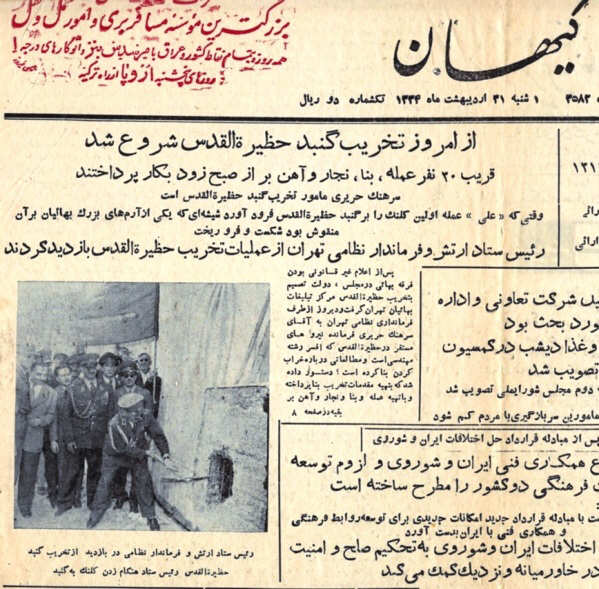 بزرگترین مؤسسه مسافربری و امور حمل و نقل
همه روزه بتمام نقاط کشور و عراق با
از راه ترکیه
کیهان
۱ شنبه ۳۱ اردیبهشت ماه ۱۳۳۴ تکشماره دو ریال
۳۵۸۲
از امروز تخریب گنبد حظیرةالقدس شروع شد
قریب ۲۰ نفر عمله، بنا، نجار و آهن بر از صبح زود بکار پرداختند
سرهنگ حریری مامور تخریب گنبد حظیرةالقدس است
وقتی که «علی» عمله اولین کلنگ را بر گنبد حظیرةالقدس فرود آورد شیشه‌ای که یکی از آرم‌های بزرگ بهائیان بر آن
منقوش بود شکست و فرو ریخت
رئیس ستاد ارتش و فرماندار نظامی تهران از عملیات تخریب حظیرةالقدس بازدید کردند
پس از اعلام غیر قانونی بودن
فرقه بهائی در مجلس، دولت تصمیم
بتخریب حظیرةالقدس مرکز تبلیغات
بهائیان تهران گرفت و دیروز از طرف
فرمانداری نظامی تهران به آقای
سرهنگ حریری فرمانده نیروهای
مستقر در حظیرةالقدس که افسر رشته
مهندسی است و مطالعاتی درباره خراب
کردن بنا کرده است؛ دستور داده
شد که بتهیه مقدمات تخریب بنا پرداخته
و باتهیه عمله و بنا و نجار و آهن بر
بقیه در صفحه ۸
رئیس ستاد ارتش و فرماندار نظامی در بازدید از تخریب گنبد
حظیرةالقدس رئیس ستاد هنگام زدن کلنگ به گنبد
شرکت تعاونی و اداره
مورد بحث بود
و غذا دیشب در کمسیون
تصویب شد
دوم مجلس شورایملی تصویب شد
مامورین سربازگیری با مردم کم شود
پس از مبادله قرارداد حل اختلافات ایران و شوروی
همکاری فنی ایران و شوروی و لزوم توسعه
فرهنگی دو کشور را مطرح ساخته است
با مبادله قرارداد جدید امکانات جدیدی برای توسعه روابط فرهنگی
و همکاری فنی با ایران بدست آورد
اختلافات ایران و شوروی به تحکیم صلح و امنیت
در خاورمیانه و نزدیک کمک می‌کند